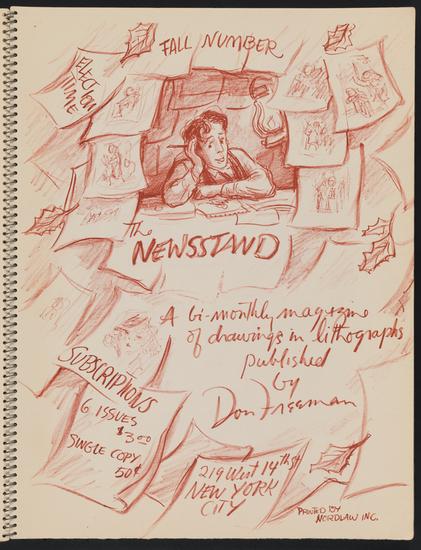 FALL NUMBER
ELECTION
TIME
the
NEWSSTAND
A bi-monthly magazine
of drawings in lithographs
published
by
Don Freeman
SUBSCRIPTIONS
6 ISSUES
$3.00
SINGLE COPY
50¢
219 West 14th St
NEW YORK
CITY
PRINTED BY
NORDLAW INC.